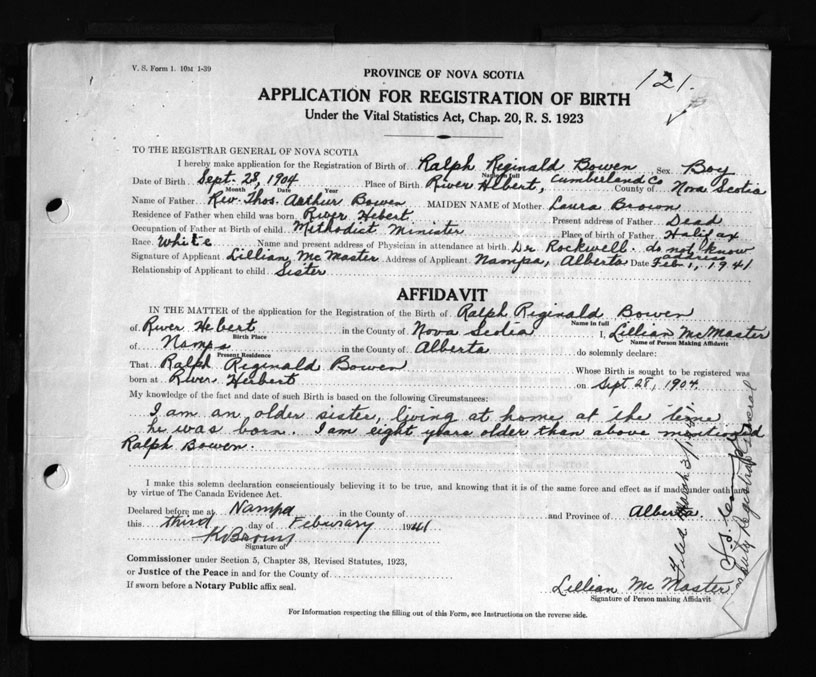 V. S. Form 1. 10M 1-39
121.
PROVINCE OF NOVA SCOTIA
APPLICATION FOR REGISTRATION OF BIRTH
Under the Vital Statistics Act, Chap. 20, R. S. 1923
TO THE REGISTRAR GENERAL OF NOVA SCOTIA
I hereby make application for the Registration of Birth of Ralph Reginald Bowen Sex Boy
Name in full
Date of Birth Sept. 28, 1904 Place of Birth River Hebert, Cumberland Co County of Nova Scotia
Month Date Year
Name of Father Rev. Thos. Arthur Bowen MAIDEN NAME of Mother Laura Brown
Residence of Father when child was born River Hebert Present address of Father Dead
Occupation of Father at Birth of child Methodist Minister Place of birth of Father Halifax
Race White Name and present address of Physician in attendance at birth Dr Rockwell. do not know address
Signature of Applicant Lillian McMaster Address of Applicant Nampa, Alberta Date Feb. 1, 1941
Relationship of Applicant to child Sister
AFFIDAVIT
IN THE MATTER of the application for the Registration of the Birth of Ralph Reginald Bowen
Name in full
of River Hebert in the County of Nova Scotia I, Lillian McMaster
Birth Place Name of Person Making Affidavit
of Nampa in the County of Alberta do solemnly declare:
Present Residence
That Ralph Reginald Bowen Whose Birth is sought to be registered was
born at River Hebert on Sept 28, 1904
My knowledge of the fact and date of such Birth is based on the following Circumstances:
I am an older sister, living at home at the time
he was born. I am eight years older than above mentioned
Ralph Bowen.
I make this solemn declaration conscientiously believing it to be true, and knowing that it is of the same force and effect as if made under oath and
by virtue of The Canada Evidence Act.
Declared before me at Nampa in the County of and Province of Alberta
this third day of Feburary 1941
Signature of
Commissioner under Section 5, Chapter 38, Revised Statutes, 1923,
or Justice of the Peace in and for the County of
If sworn before a Notary Public affix seal.
Lillian McMaster
Signature of Person making Affidavit
For Information respecting the filling out of this Form, see Instructions on the reverse side.
Filed March 31, 1941.
Deputy Registrar General